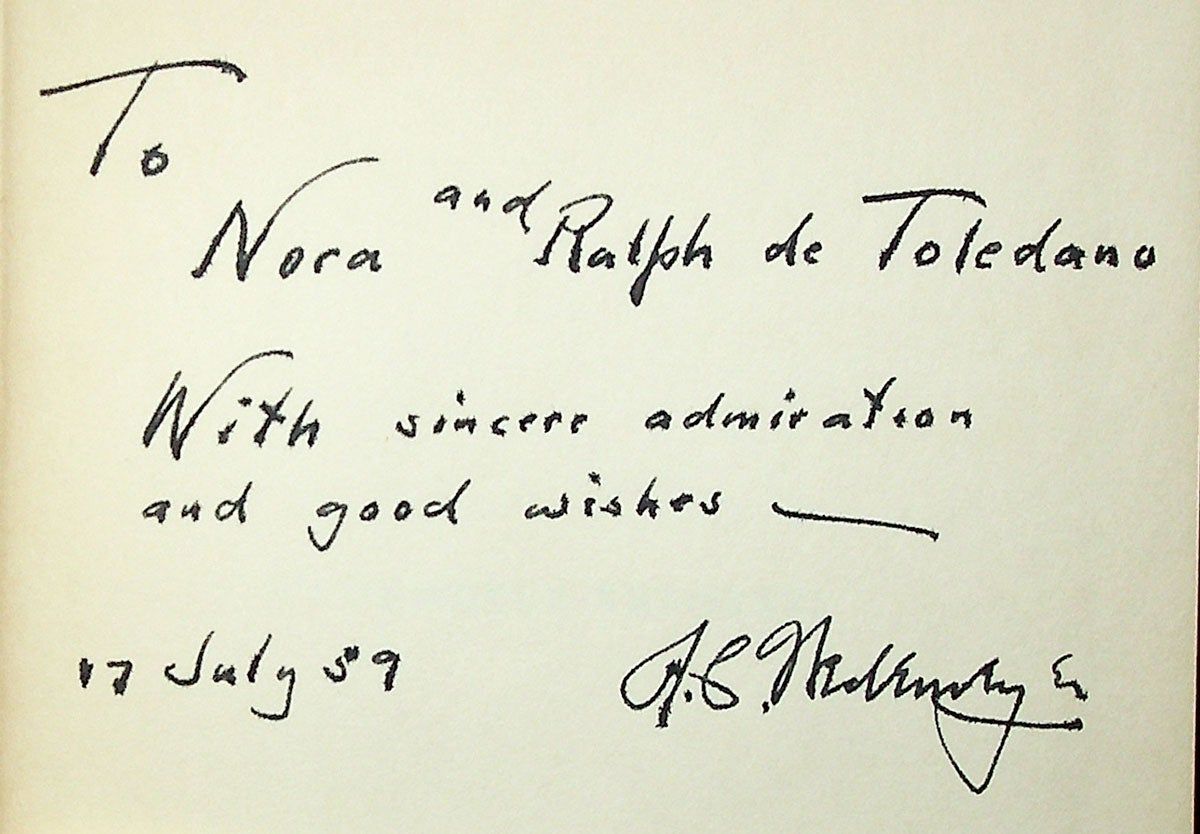 To
Nora and Ralph de Toledano
With sincere admiration
and good wishes —
17 July 59 A. C. Wedemeyer